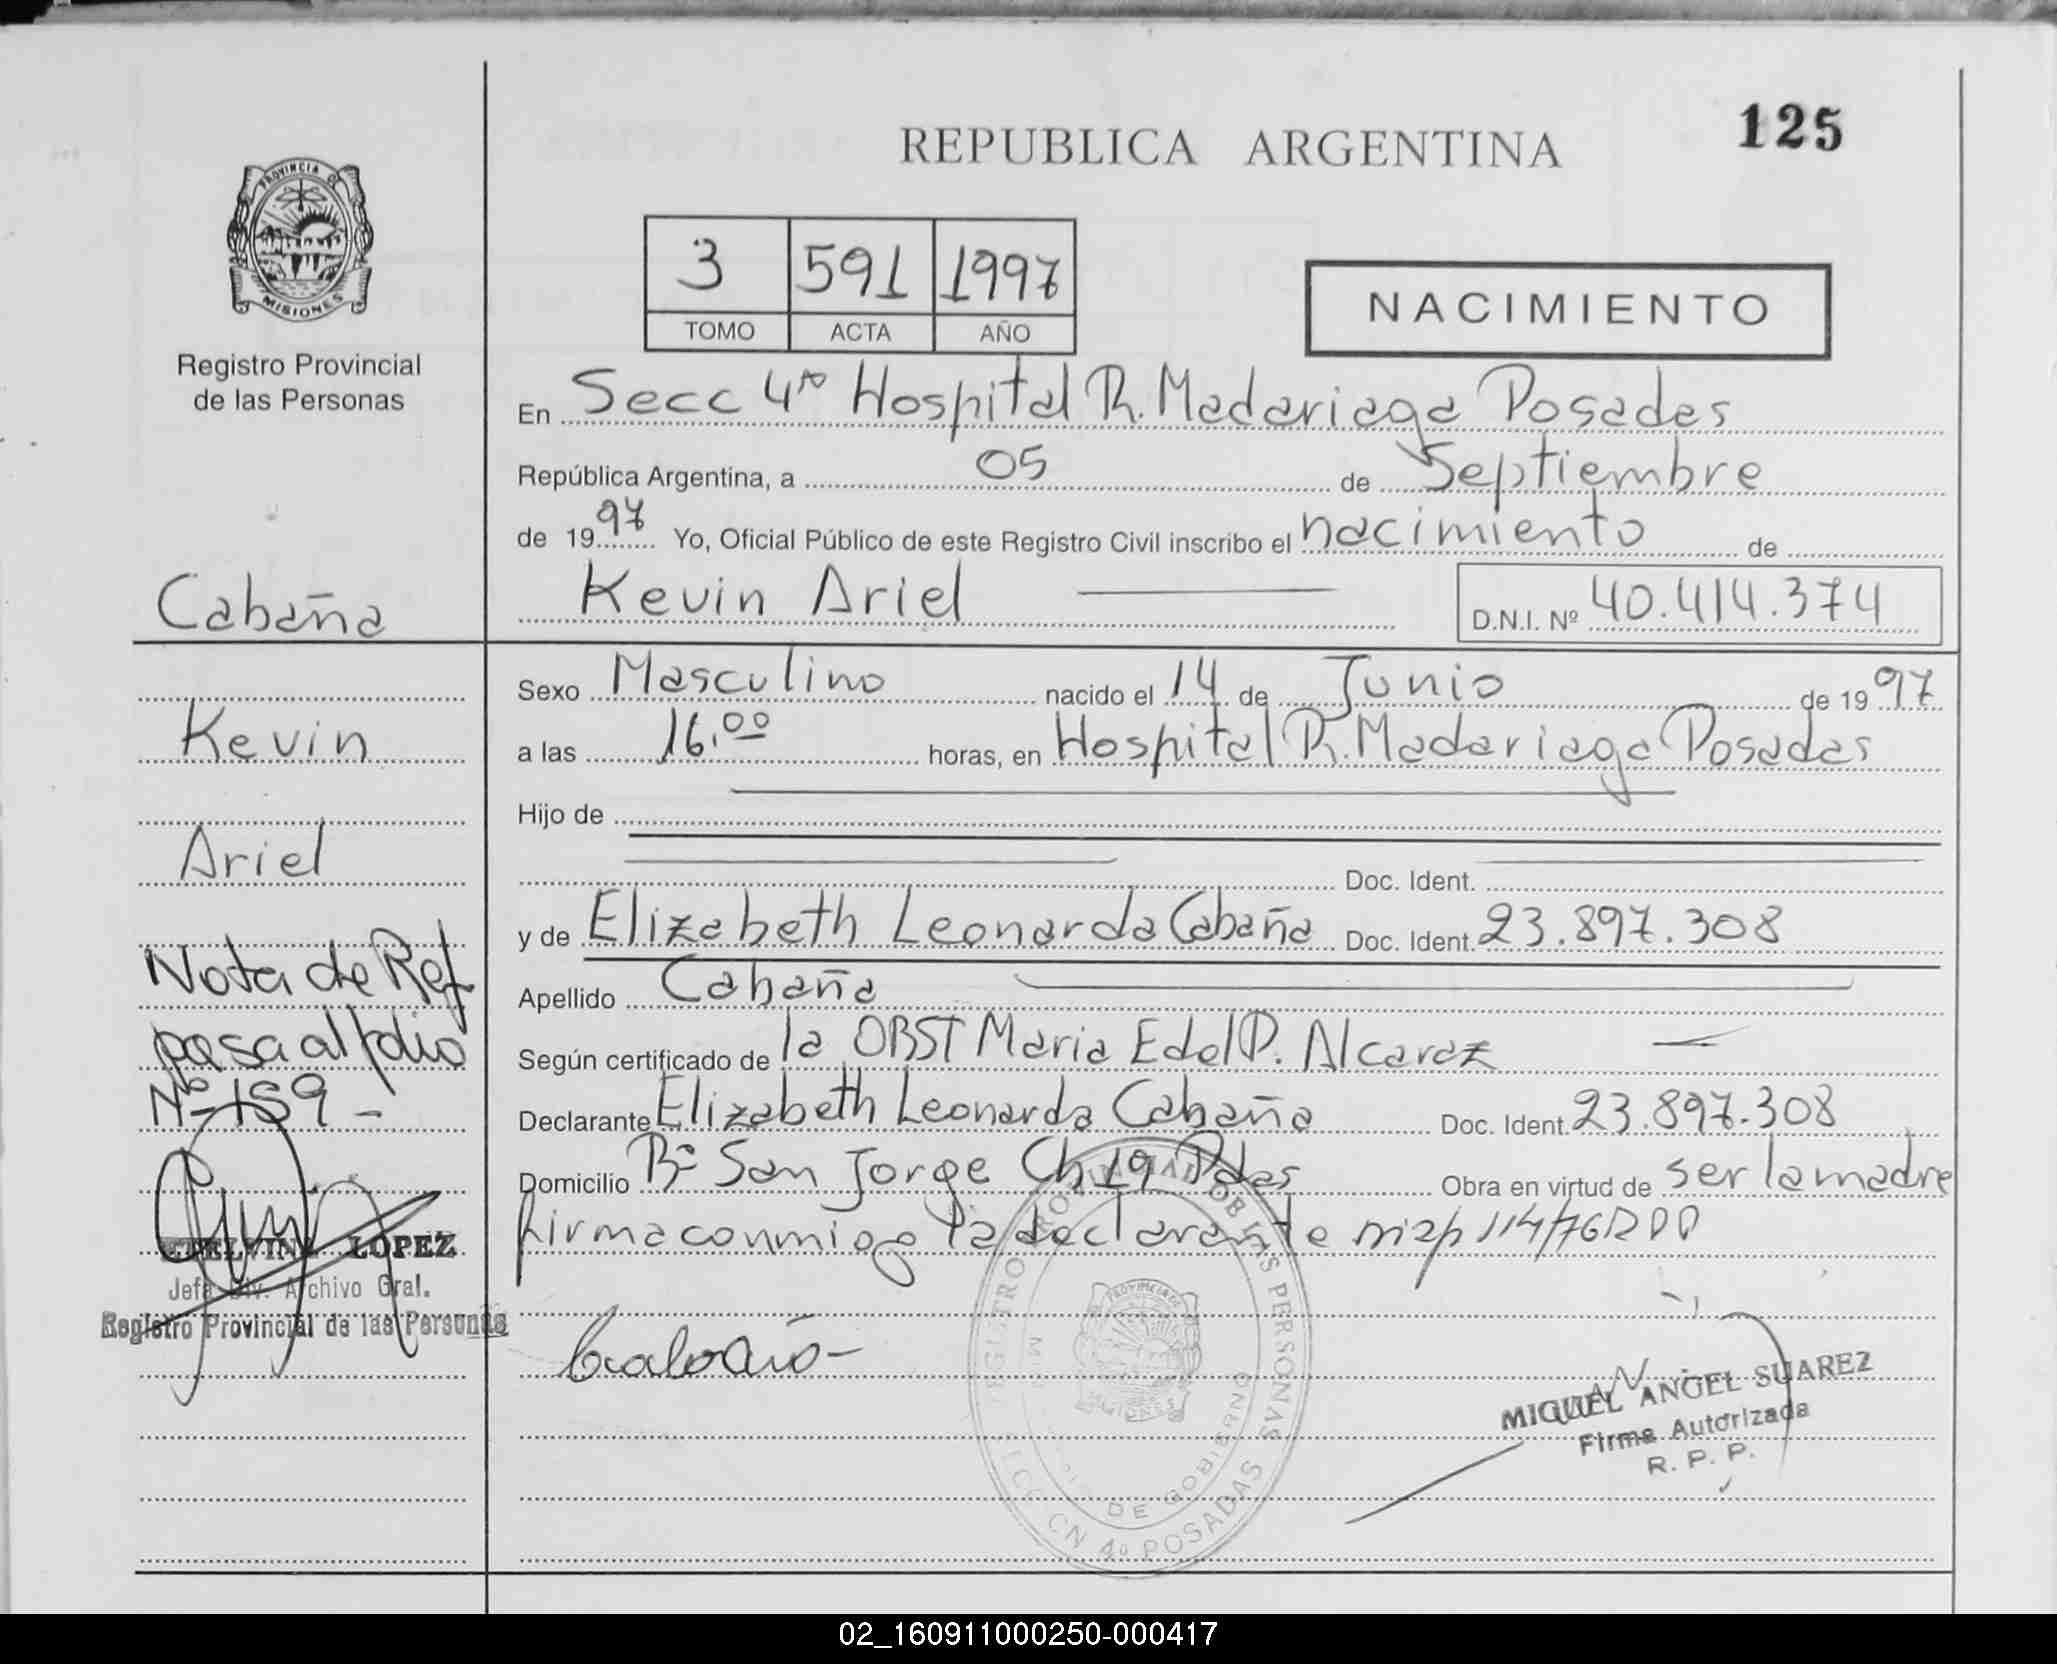 125
REPUBLICA ARGENTINA
PROVINCIA DE
MISIONES
Registro Provincial
de las Personas
3 591 1997
TOMO ACTA AÑO
NACIMIENTO
En Secc 4ta Hospital R. Madariaga Posadas
República Argentina, a 05 de Septiembre
de 1997 Yo, Oficial Público de este Registro Civil inscribo el nacimiento de
Kevin Ariel D.N.I. Nº 40.414.374
Sexo Masculino nacido el 14 de Junio de 1997
a las 16,00 horas, en Hospital R. Madariaga Posadas
Hijo de
Doc. Ident.
y de Elizabeth Leonarda Cabaña Doc. Ident. 23.897.308
Apellido Cabaña
Según certificado de la OBST Maria Edel P. Alcaraz
Declarante Elizabeth Leonarda Cabaña Doc. Ident. 23.897.308
Domicilio Bº San Jorge Ch 19 Pdas Obra en virtud de ser la madre
firma conmigo la declarante
Cabaña
Kevin
Ariel
Nota de Ref
pasa al folio
Nº 159 -
LOPEZ
Jefa Div. Archivo Gral.
Registro Provincial de las Personas
REGISTRO PROVINCIAL DE LAS PERSONAS
DE GOBIERNO
SECCION 4º POSADAS
MIGUEL ANGEL SUAREZ
Firma Autorizada
R. P. P.
02_160911000250-000417